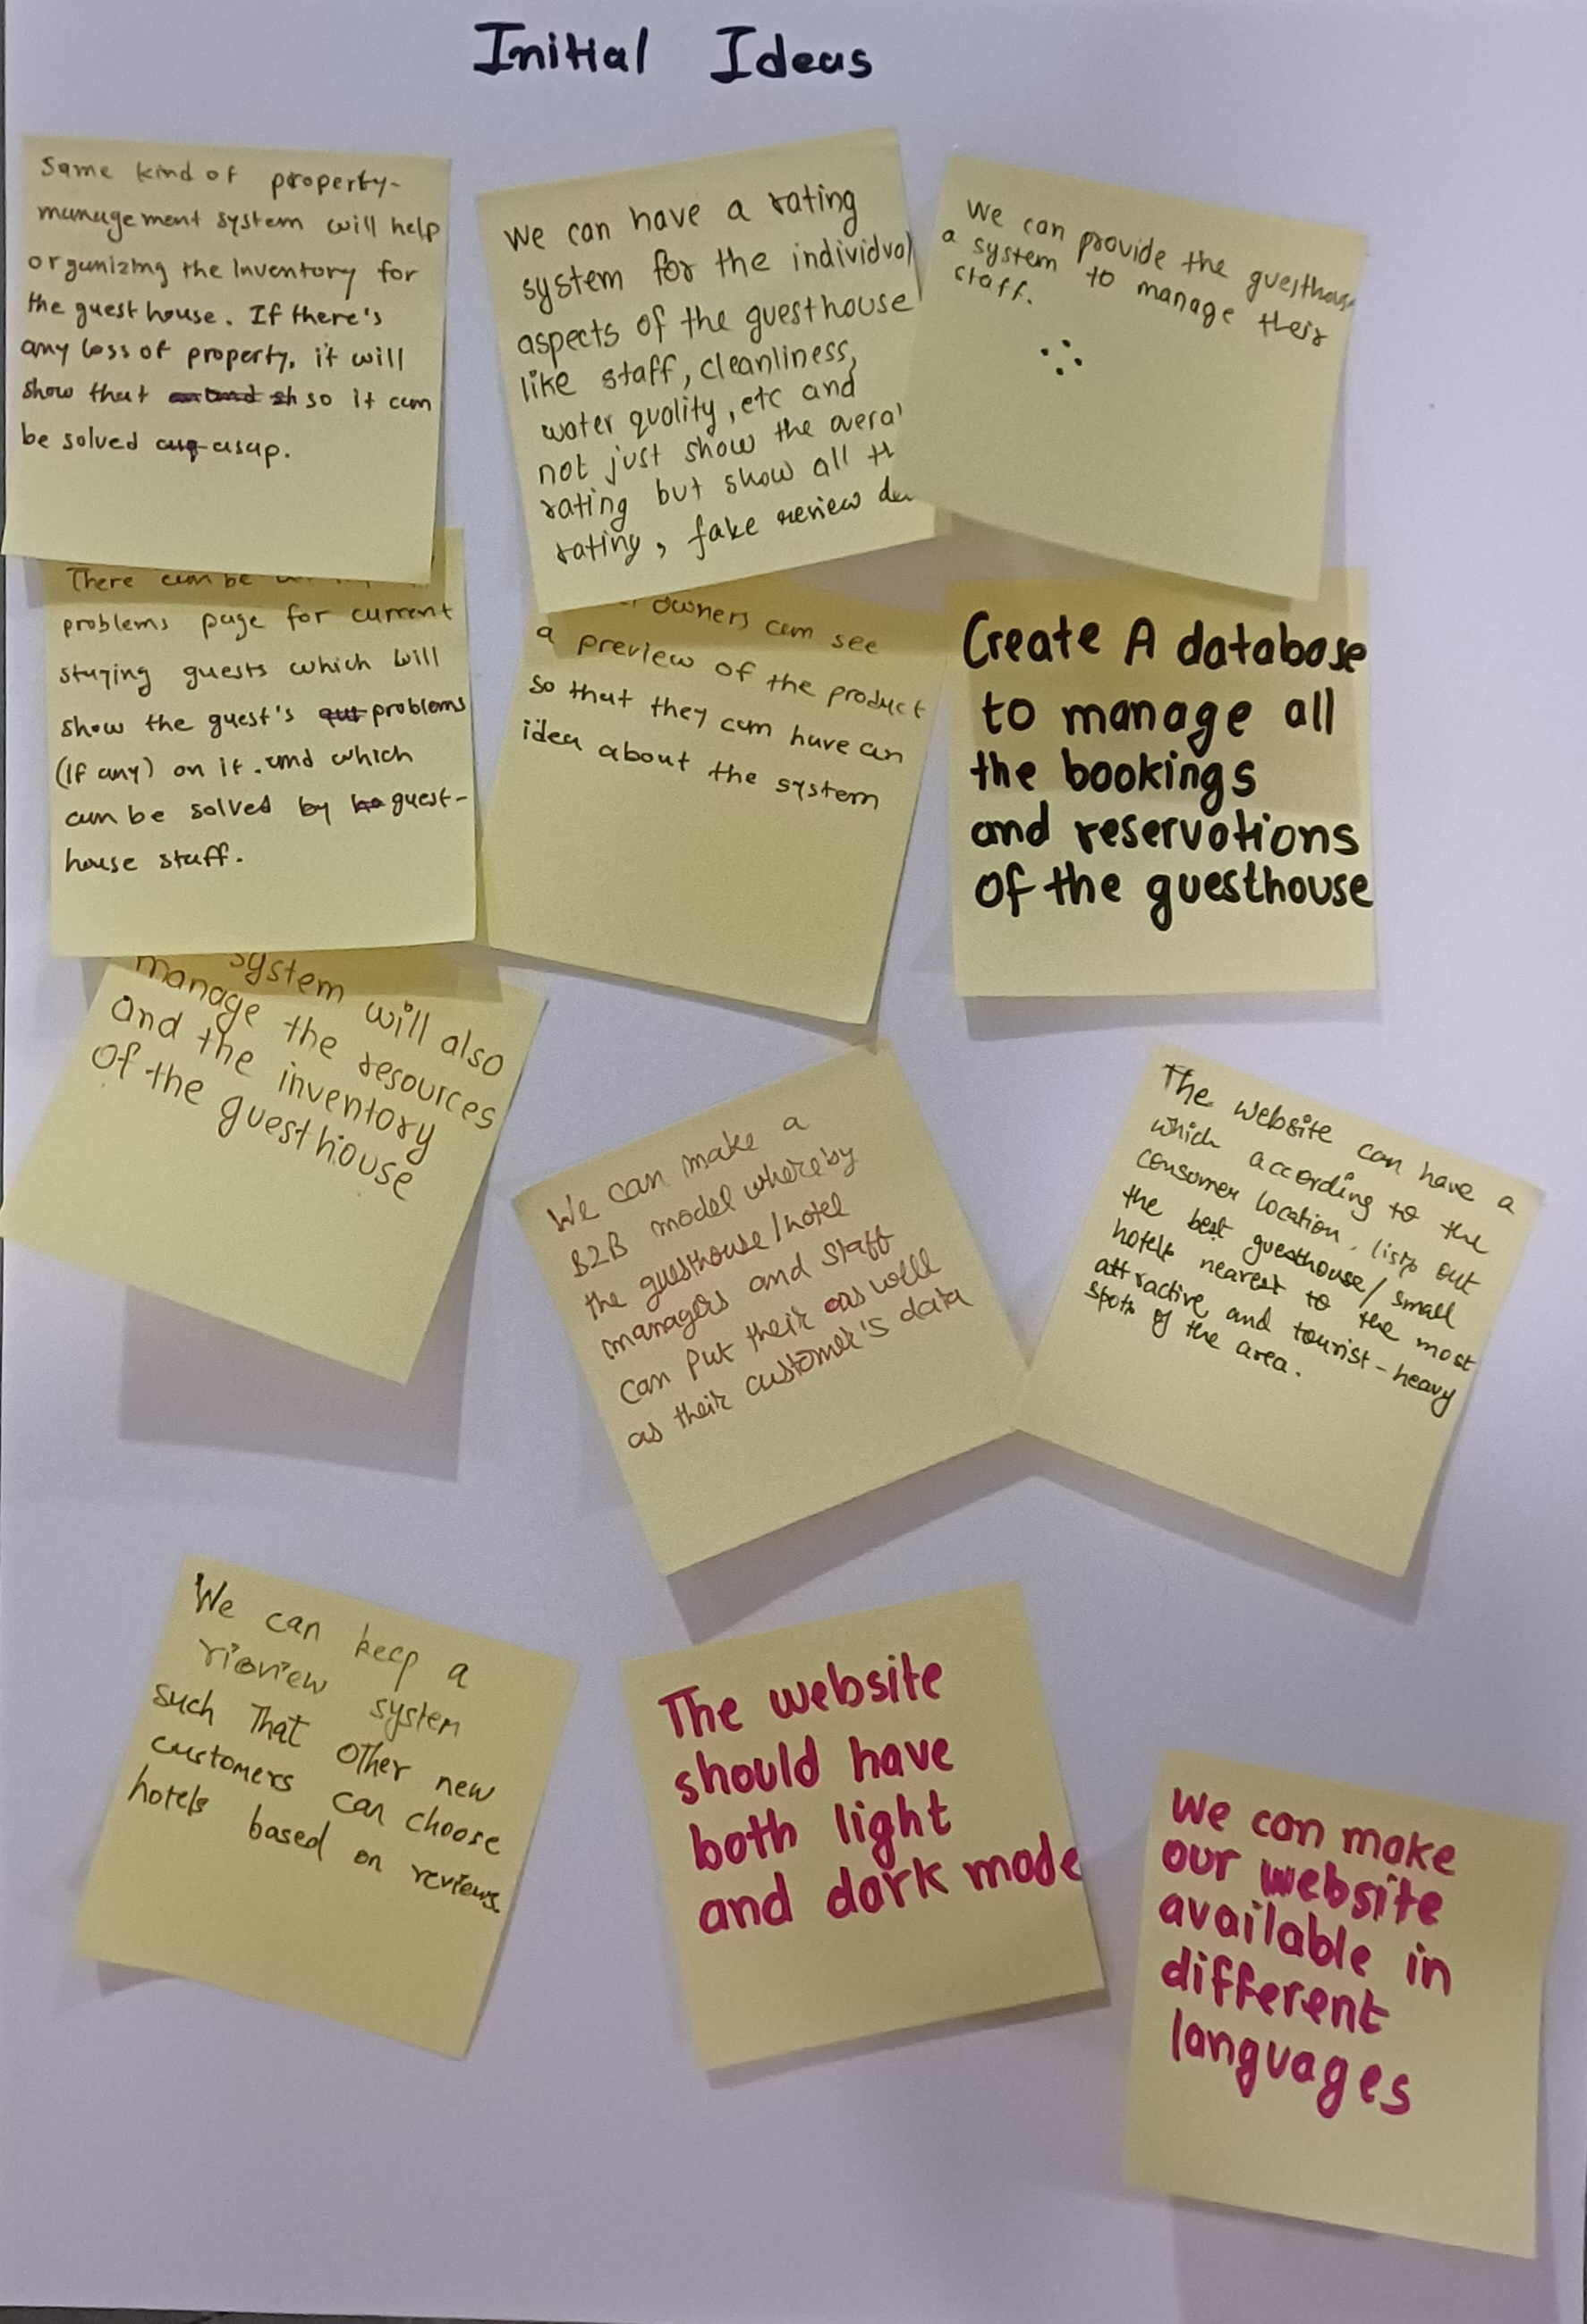 Initial Ideas
Same kind of property-
management system will help
organizing the inventory for
the guest house. If there's
any loss of property, it will
show that so it can
be solved asap.
We can have a rating
system for the individual
aspects of the guesthouse
like staff, cleanliness,
water quality, etc and
not just show the
rating but show all
rating, fake review
We can provide the
a system to manage their
staff.
There can be
problems page for current
staying guests which will
show the guest's problems
(If any) on it. and which
can be solved by guest-
house staff.
owners can see
a preview of the product
so that they can have an
idea about the system
Create A database
to manage all
the bookings
and reservations
of the guesthouse
system will also
manage the resources
and the inventory
of the guest house
We can make a
B2B model whereby
the guesthouse/hotel
managers and staff
can put their as well
as their customer's data
The website can have a
which according to the
consumer location, lists out
the best guesthouse/small
hotels nearest to the most
attractive and tourist-heavy
spots of the area.
We can keep a
rieview system
such That other new
customers can choose
hotels based on reviews.
The website
should have
both light
and dark mode
We can make
our website
available in
different
languages